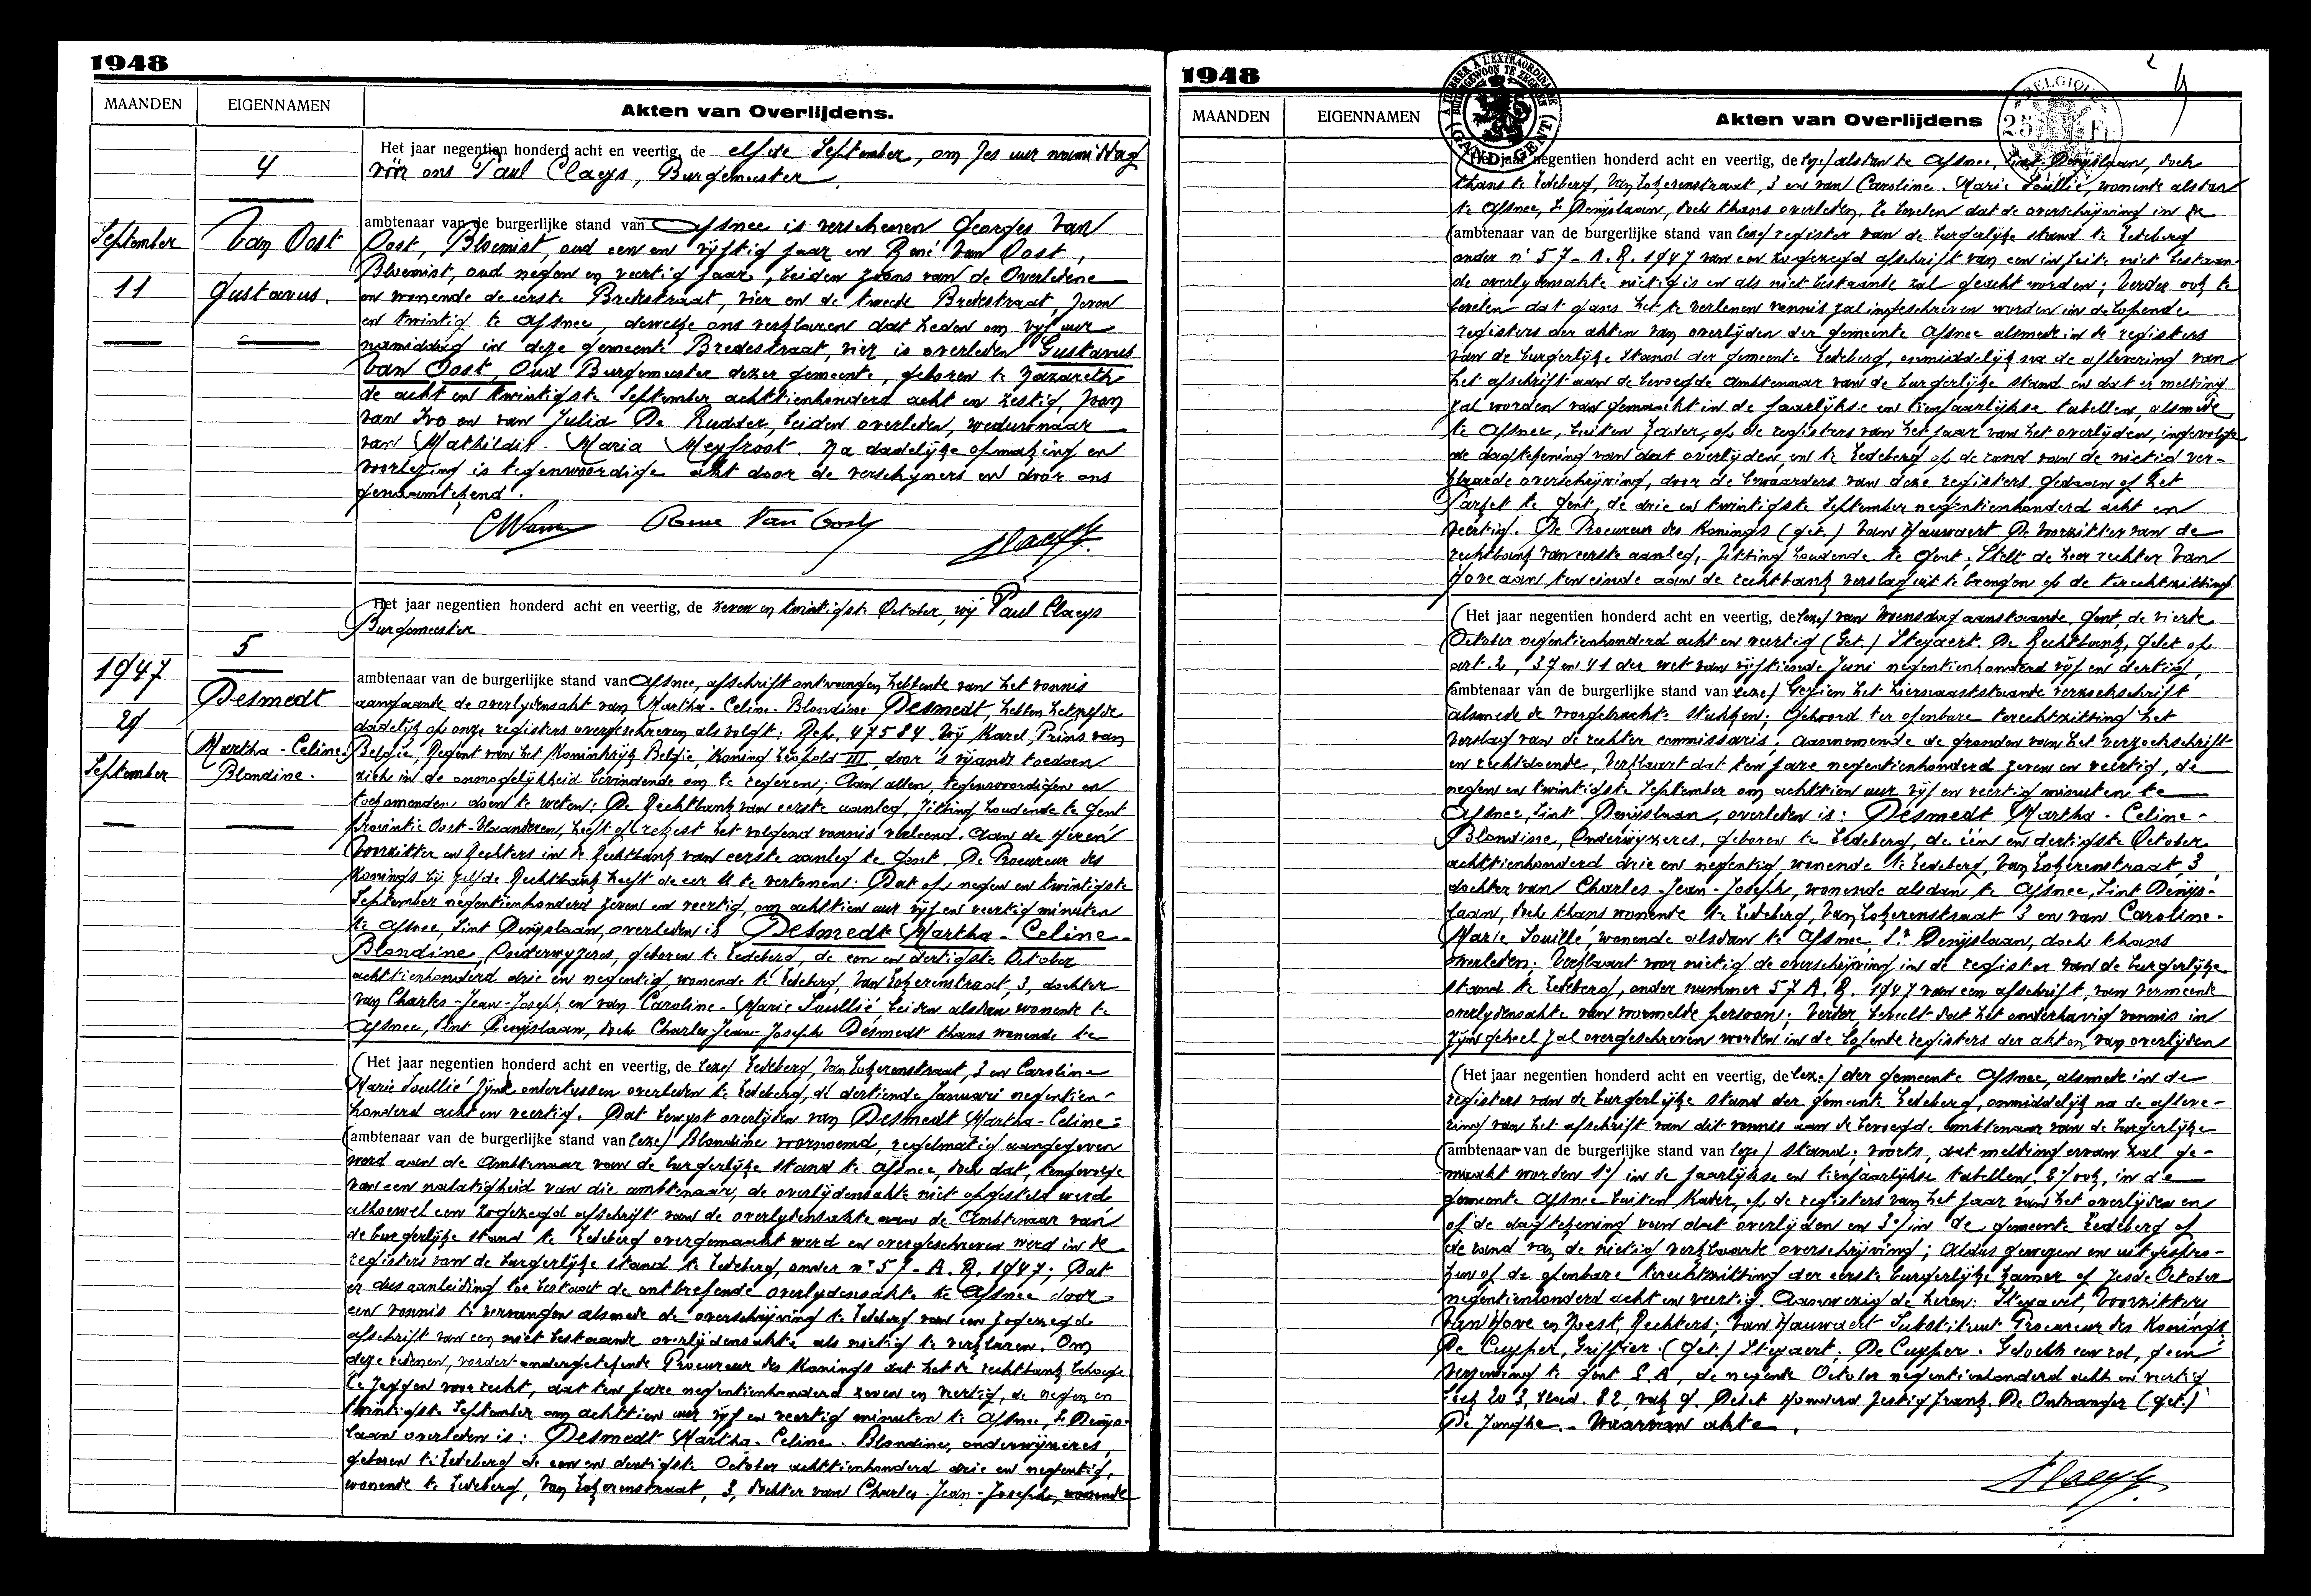 1948
MAANDEN
EIGENNAMEN
Akten van Overlijdens.
4
September
Van Oost
11
Gustavus.
Het jaar negentien honderd acht en veertig, de elfde September, om zes uur namiddag
vóór ons Paul Claeys, Burgemeester
ambtenaar van de burgerlijke stand van Afsnee is verschenen Georges Van
Oost, Bloemist, oud een en vijftig jaar en René Van Oost,
Bloemist, oud negen en veertig jaar, beiden zoons van de Overledene
en wonende de eerste Bredestraat, vier en de tweede Bredestraat, zeven
en twintig te Afsnee, dewelke ons verklaren dat heden om vijf uur
namiddag in deze gemeente Bredestraat, vier is overleden Gustavus
Van Oost, Oud Burgemeester dezer gemeente, geboren te Nazareth
de acht en twintigste September achttienhonderd acht en zestig, zoon
van Ivo en van Julia De Rudder, beiden overleden, weduwnaar
van Mathildis-Maria Meyfroot. Na dadelijke opmaking en
voorlezing is tegenwoordige akt door de verschijners en door ons
genaamtekend.
Rene Van Oost
Claeys.
5
1947
Desmedt
29
Martha-Celine
September
Blondine.
Het jaar negentien honderd acht en veertig, de zeven en twintigste October, wij Paul Claeys
Burgemeester
ambtenaar van de burgerlijke stand van Afsnee, afschrift ontvangen hebbende van het vonnis
aangaande de overlijdensakt van Martha-Celine-Blondine Desmedt, hebben hetzelfde
dadelijk op onze registers overgeschreven als volgt: Rep. 47584. Wij Karel, Prins van
België, Regent van het Koninkrijk België, Koning Leopold III, door 's vijands toedoen
zich in de onmogelijkheid bevindende om te regeren; Aan allen, tegenwoordigen en
toekomenden doen te weten: De Rechtbank van eerste aanleg, zitting houdende te Gent
provintie Oost-Vlaanderen, heeft op rekest het volgend vonnis verleend. Aan de Heren
Voorzitter en Rechters in de Rechtbank van eerste aanleg te Gent. De Procureur des
Konings bij zelfde Rechtbank heeft de eer U te vertonen: Dat op negen en twintigste
September negentienhonderd zeven en veertig, om achttien uur vijf en veertig minuten
te Afsnee, Sint Denijslaan, overleden is Desmedt Martha-Celine-
Blondine, Onderwijzeres, geboren te Ledeberg, de een en dertigste October
achttienhonderd drie en negentig, wonende te Ledeberg, Van Lokerenstraat, 3, dochter
van Charles-Jean-Joseph en van Caroline-Marie Soullié, beiden alsdan wonende te
Afsnee, Sint Denijslaan, doch Charles-Jean-Joseph Desmedt thans wonende te
(Het jaar negentien honderd acht en veertig, de leze/ Ledeberg, Van Lokerenstraat, 3 en Caroline
Marie Soullié zijnd ondertussen overleden te Ledeberg, de dertiende Januari negentien-
honderd acht en veertig. Dat bewust overlijden van Desmedt Martha-Celine=
(ambtenaar van de burgerlijke stand van leze/ Blondine voornoemd, regelmatig aangegeven
werd aan de Ambtenaar van de burgerlijke stand te Afsnee, doch dat, tengevolge
van een nalatigheid van die ambtenaar, de overlijdensakte niet opgesteld werd
alhoewel een zogezegd afschrift van de overlijdensakte aan de Ambtenaar van
de burgerlijke stand te Ledeberg overgemaakt werd en overgeschreven werd in de
registers van de burgerlijke stand te Ledeberg, onder n° 57-A.R. 1947; Dat
er dus aanleiding toe bestaat de ontbrekende overlijdensakte te Afsnee door
een vonnis te vervangen alsmede de overschrijving te Ledeberg van een zogezegde
afschrift van een niet bestaande overlijdensakte als nietig te verklaren. Om
deze redenen, vordert ondergetekende Procureur des Konings dat het de rechtbank behage
te zeggen voor recht, dat ten jare negentienhonderd zeven en veertig, de negen en
twintigste September om achttien uur vijf en veertig minuten te Afsnee, St Denijs-
laan overleden is: Desmedt Martha-Celine-Blondine, onderwijzeres,
geboren te Ledeberg de een en dertigste October achttienhonderd drie en negentig,
wonende te Ledeberg, Van Lokerenstraat, 3, dochter van Charles-Jean-Joseph, wonende
1948
MAANDEN
EIGENNAMEN
Akten van Overlijdens
A TIMBRER À L'EXTRAORDINAIRE
BUITENGEWOON TE ZEGELEN
(GAND-GENT)
BELGIQUE
25 Fr
4
(Het jaar negentien honderd acht en veertig, de leze/ alsdan te Afsnee, Sint-Denijslaan, doch
thans te Ledeberg, Van Lokerenstraat, 3 en van Caroline-Marie Soullié, wonende alsdan
te Afsnee, St Denijslaan, doch thans overleden. Te bevelen dat de overschrijving in de
(ambtenaar van de burgerlijke stand van leze/ register van de burgerlijke stand te Ledeberg
onder n° 57-A.R. 1947 van een zogezegd afschrift van een in feite niet bestaan-
de overlijdensakte nietig is en als niet bestaande zal geacht worden; Verder ook te
bevelen dat gans het te verlenen vonnis zal ingeschreven worden in de lopende
registers der akten van overlijden der gemeente Afsnee alsmede in de registers
van de burgerlijke stand der gemeente Ledeberg, onmiddelijk na de aflevering van
het afschrift aan de bevoegde ambtenaar van de burgerlijke stand en dat er melding
zal worden van gemaakt in de jaarlijkse en tienjaarlijkse tabellen, alsmede
te Afsnee, buiten kader, op de registers van het jaar van het overlijden, ingevolge
de dagtekening van dat overlijden, en te Ledeberg op de rand van de nietig ver-
klaarde overschrijving, door de bewaarders van deze registers. Gedaan op het
Parket te Gent, de drie en twintigste September negentienhonderd acht en
veertig. De Procureur des Konings (get.) Van Hauwaert. De Voorzitter van de
rechtbank van eerste aanleg, zitting houdende te Gent; Stelt de heer rechter Van
Hove aan ten einde aan de rechtbank verslag uit te brengen op de terechtzitting
(Het jaar negentien honderd acht en veertig, de leze/ van Woensdag aanstaande. Gent, de vierde
October negentienhonderd acht en veertig (Get.) Steyaert. De Rechtbank, Gelet op
art. 2, 37 en 41 der wet van vijftiende Juni negentienhonderd vijf en dertig,
(ambtenaar van de burgerlijke stand van leze/ Gezien het hiernaaststaande verzoekschrift
alsmede de voorgebrachte stukken; Gehoord ter openbare terechtzitting het
verslag van de rechter commissaris; Aannemende de gronden van het verzoekschrift
en rechtdoende, Verklaart dat ten jare negentienhonderd zeven en veertig, de
negen en twintigste September om achttien uur vijf en veertig minuten te
Afsnee, Sint Denijslaan, overleden is: Desmedt Martha-Celine-
Blondine, Onderwijzeres, geboren te Ledeberg, de één en dertigste October
achttienhonderd drie en negentig wonende te Ledeberg, Van Lokerenstraat, 3,
dochter van Charles-Jean-Joseph, wonende alsdan te Afsnee, Sint Denijs-
laan, doch thans wonende te Ledeberg, Van Lokerenstraat 3 en van Caroline-
Marie Souillé, wonende alsdan te Afsnee, St Denijslaan, doch thans
overleden; Verklaart voor nietig de overschrijving in de register van de burgerlijke
stand te Ledeberg, onder nummer 57 A.R. 1947 van een afschrift, van vermeende
overlijdensakte van voormelde persoon; Verder beveelt dat het onderhavig vonnis in
zijn geheel zal overgeschreven worden in de lopende registers der akten van overlijden
(Het jaar negentien honderd acht en veertig, de leze/ der gemeente Afsnee, alsmede in de
registers van de burgerlijke stand der gemeente Ledeberg, onmiddelijk na de afleve-
ring van het afschrift van dit vonnis aan de bevoegde ambtenaar van de burgerlijke
(ambtenaar van de burgerlijke stand van leze/ stand; voorts, dat melding ervan zal ge-
maakt worden 1°/ in de jaarlijkse en tienjaarlijkse tabellen, 2°/ ook, in de
gemeente Afsnee buiten kader, op de registers van het jaar van het overlijden en
op de dagtekening van dat overlijden en 3°/ in de gemeente Ledeberg op
de rand van de nietig verklaarde overschrijving; Aldus gewezen en uitgespro-
ken op de openbare terechtzitting der eerste burgerlijke kamer op zesde October
negentienhonderd acht en veertig. Aanwezig de heren: Steyaert, Voorzitter;
Van Hove en Joest, Rechters; Van Hauwaert Substituut Procureur des Konings;
De Cuyper, Griffier. (Get.) Steyaert; De Cuyper. Geboekt een rol, geen
verzending te Gent G.A., de negende October negentienhonderd acht en veertig
boek 203, blad. 82, vak 9. Debet Honderd zestig frank. De Ontvanger (get.)
De Jonghe. - Waarvan akte.
Claeys.